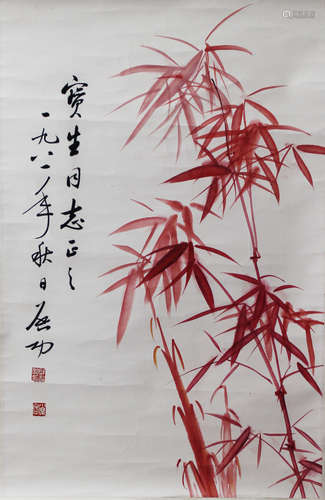 寶生同志正之
一九八一年秋日啟功